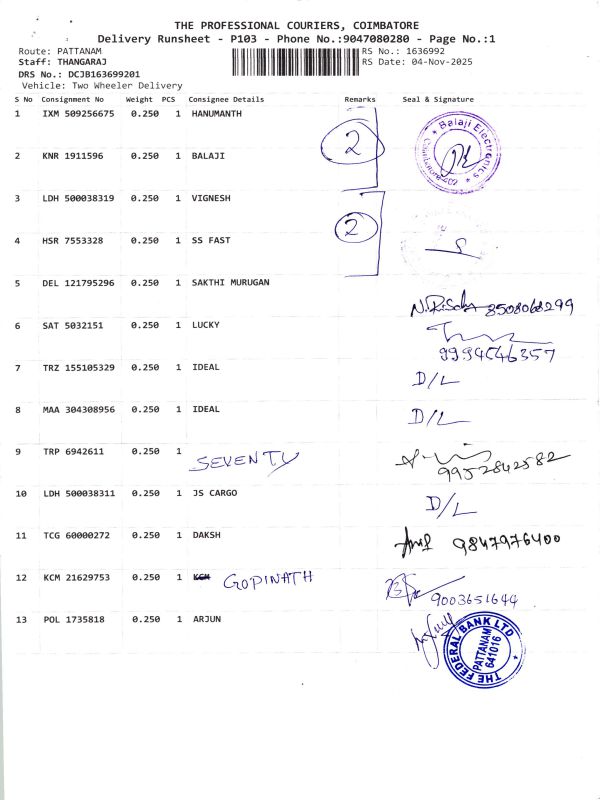 THE PROFESSIONAL COURIERS, COIMBATORE
Delivery Runsheet - P103 - Phone No.:9047080280 - Page No.:1
Route: PATTANAM RS No.: 1636992
Staff: THANGARAJ RS Date: 04-Nov-2025
DRS No.: DCJB163699201
Vehicle: Two Wheeler Delivery
S No Consignment No Weight PCS Consignee Details Remarks Seal & Signature
1 IXM 509256675 0.250 1 HANUMANTH
2 Balaji Electronics
2 KNR 1911596 0.250 1 BALAJI
3 LDH 500038319 0.250 1 VIGNESH
2
4 HSR 7553328 0.250 1 SS FAST
5 DEL 121795296 0.250 1 SAKTHI MURUGAN
8508068299
6 SAT 5032151 0.250 1 LUCKY
9994646357
7 TRZ 155105329 0.250 1 IDEAL D/L
8 MAA 304308956 0.250 1 IDEAL D/L
9 TRP 6942611 0.250 1 SEVENTY 9952842582
10 LDH 500038311 0.250 1 JS CARGO D/L
11 TCG 60000272 0.250 1 DAKSH 9847976400
12 KCM 21629753 0.250 1 GOPINATH 9003651644
13 POL 1735818 0.250 1 ARJUN
THE FEDERAL BANK LTD
PATTANAM
641016